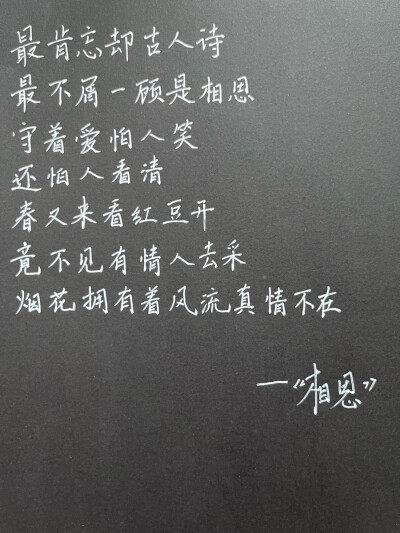 最肯忘却古人诗
最不属一顾是相思
守着爱怕人笑
还怕人看清
春又来看红豆开
竟不见有情人去采
烟花拥有着风流真情不在
—《相思》